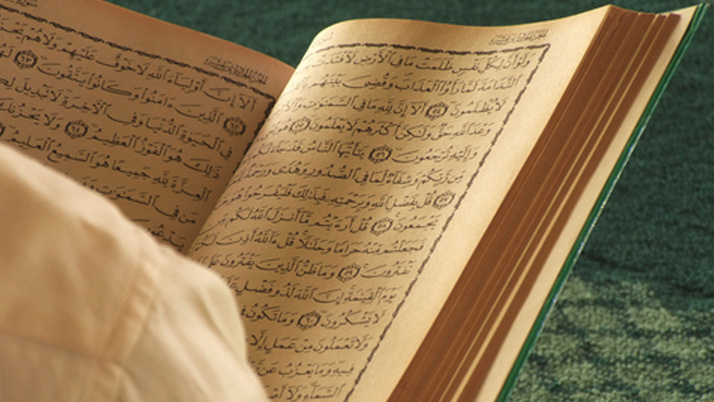 وَلَوْ أَنَّ لِكُلِّ نَفْسٍ ظَلَمَتْ مَا فِي ٱلْأَرْضِ لَٱفْتَدَتْ
ٱلنَّدَامَةَ لَمَّا رَأَوُا۟ ٱلْعَذَابَ وَقُضِيَ بَيْنَهُم
لَا يُظْلَمُونَ ٥٤ أَلَآ إِنَّ لِلَّهِ مَا فِي ٱلسَّمَٰوَٰتِ
وَعْدَ ٱللَّهِ حَقٌّ وَلَٰكِنَّ أَكْثَرَهُمْ لَا يَعْلَمُونَ ٥٥ هُوَ
وَإِلَيْهِ تُرْجَعُونَ ٥٦ يَٰٓأَيُّهَا ٱلنَّاسُ قَدْ
مِّن رَّبِّكُمْ وَشِفَآءٌ لِّمَا فِي ٱلصُّدُورِ وَهُدًى
٥٧ قُلْ بِفَضْلِ ٱللَّهِ وَبِرَحْمَتِهِۦ فَبِذَٰلِكَ فَلْيَفْرَحُوا۟ هُوَ
يَجْمَعُونَ ٥٨ قُلْ أَرَءَيْتُم مَّآ أَنزَلَ ٱللَّهُ لَكُم
فَجَعَلْتُم مِّنْهُ حَرَامًا وَحَلَٰلًا قُلْ ءَآللَّهُ أَذِنَ لَكُمْ
تَفْتَرُونَ ٥٩ وَمَا ظَنُّ ٱلَّذِينَ يَفْتَرُونَ عَلَى
يَوْمَ ٱلْقِيَٰمَةِ إِنَّ ٱللَّهَ لَذُو فَضْلٍ
لَا يَشْكُرُونَ ٦٠ وَمَا تَكُونُ
وَلَا تَعْمَلُونَ مِنْ عَمَلٍ إِلَّا
فِيهِ وَمَا يَعْزُبُ عَن
ٱلسَّمَآءِ وَلَآ
أَلَآ إِنَّ أَوْلِيَآءَ ٱللَّهِ لَا خَوْفٌ عَلَيْهِمْ وَلَا هُمْ
ٱلَّذِينَ ءَامَنُوا۟ وَكَانُوا۟ يَتَّقُونَ ٦٣
فِي ٱلْحَيَوٰةِ ٱلدُّنْيَا وَفِي ٱلْءَاخِرَةِ لَا تَبْدِيلَ
ذَٰلِكَ هُوَ ٱلْفَوْزُ ٱلْعَظِيمُ ٦٤ وَلَا يَحْزُنكَ
ٱلْعِزَّةَ لِلَّهِ جَمِيعًا هُوَ ٱلسَّمِيعُ ٱلْعَلِيمُ
مَن فِي ٱلسَّمَٰوَٰتِ